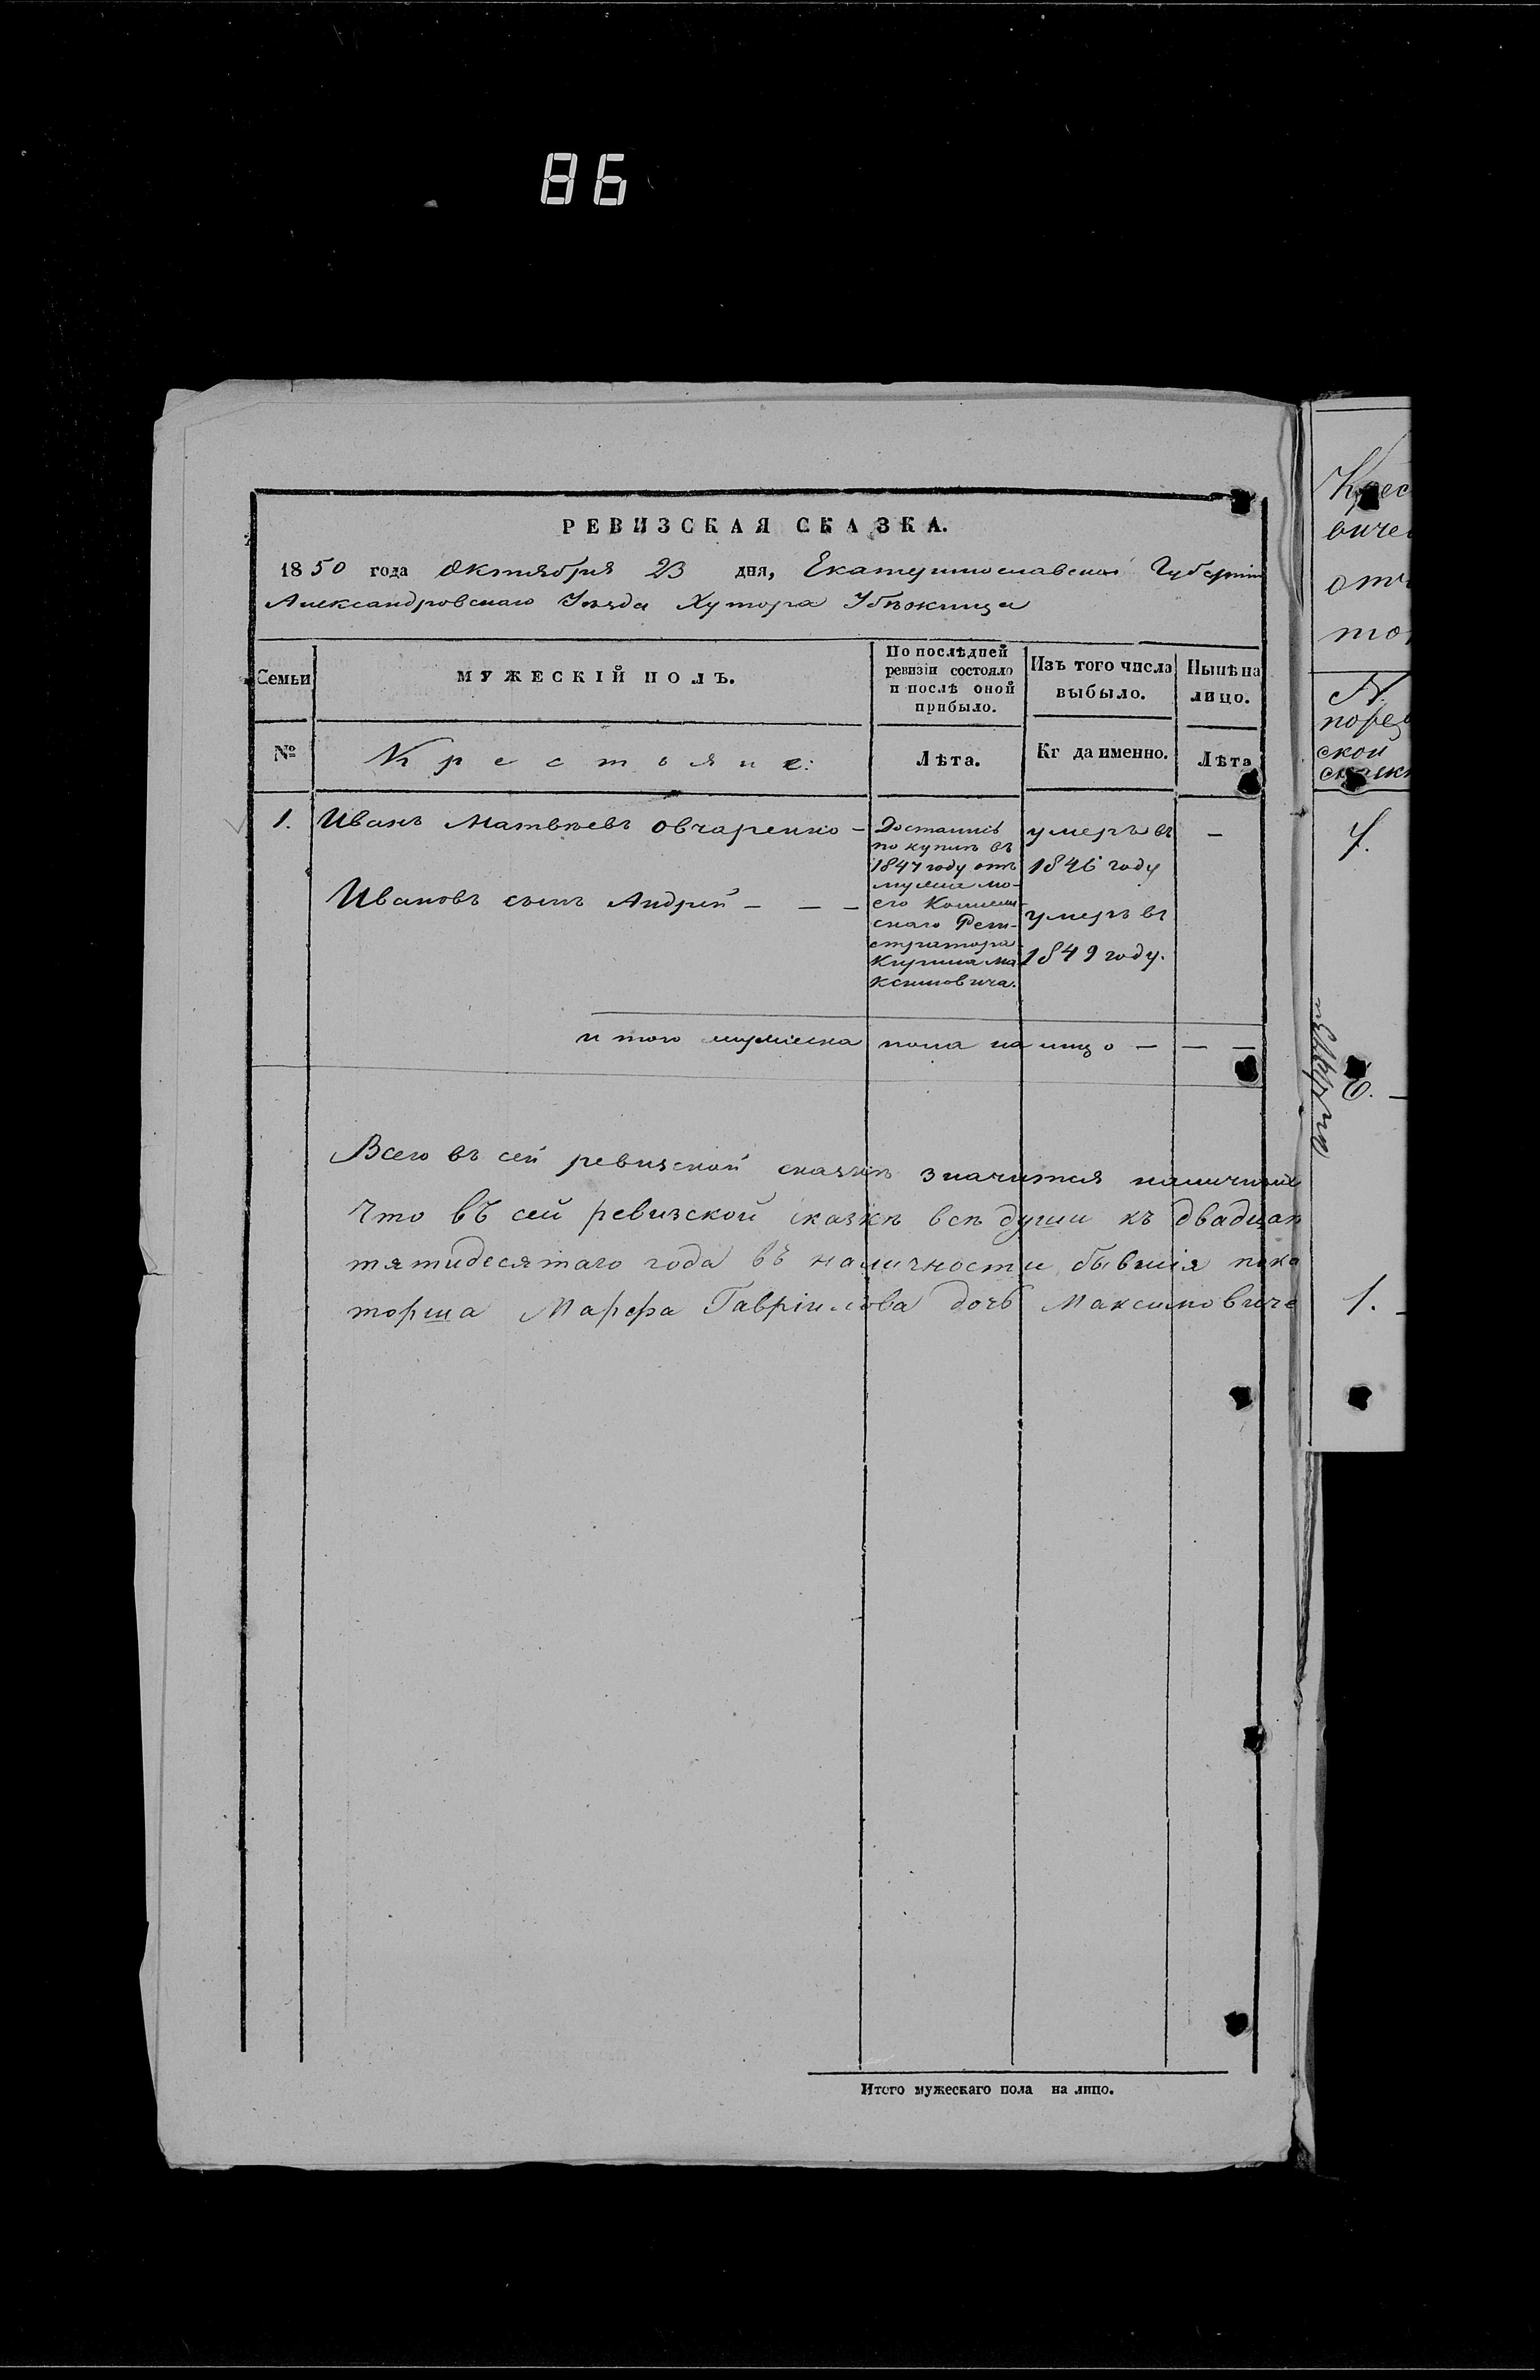 86
РЕВИЗСКАЯ СКАЗКА.
1850 года Октября 23 дня, Екатеринославской Губерніи
Александровскаго Уѣзда Хутора Убѣжища
Семьи
МУЖЕСКІЙ ПОЛЪ.
По послѣдней
ревизіи состояло
и послѣ оной
прибыло.
Изъ того числа
выбыло.
Нынѣ на
лицо.
№
Крестьяне:
Лѣта.
Кг да именно.
Лѣта
1. Иванъ Матвѣевъ Овчаренко –
Ивановъ сынъ Андрей – – –
Достались
по купли въ
1847 году отъ
мужа мо-
его Коллеж-
скаго Реги-
стратора
Кирила Ма
ксимовича.
умеръ въ
1846 году
умеръ въ
1849 году.
–
итого мужеска пола на лицо – – –
Всего въ сей ревизской сказкѣ значится наличныхъ
Что въ сей ревизской сказкѣ всѣ души къ двадцат
пятидесятаго года въ наличности бывшія пока
торша Марфа Гавріилова дочь Максимовиче
Итого мужескаго пола на лицо.
Крес
виче
отъ
тор
№
по рев
ской
сказк
1.
6. –
1. –